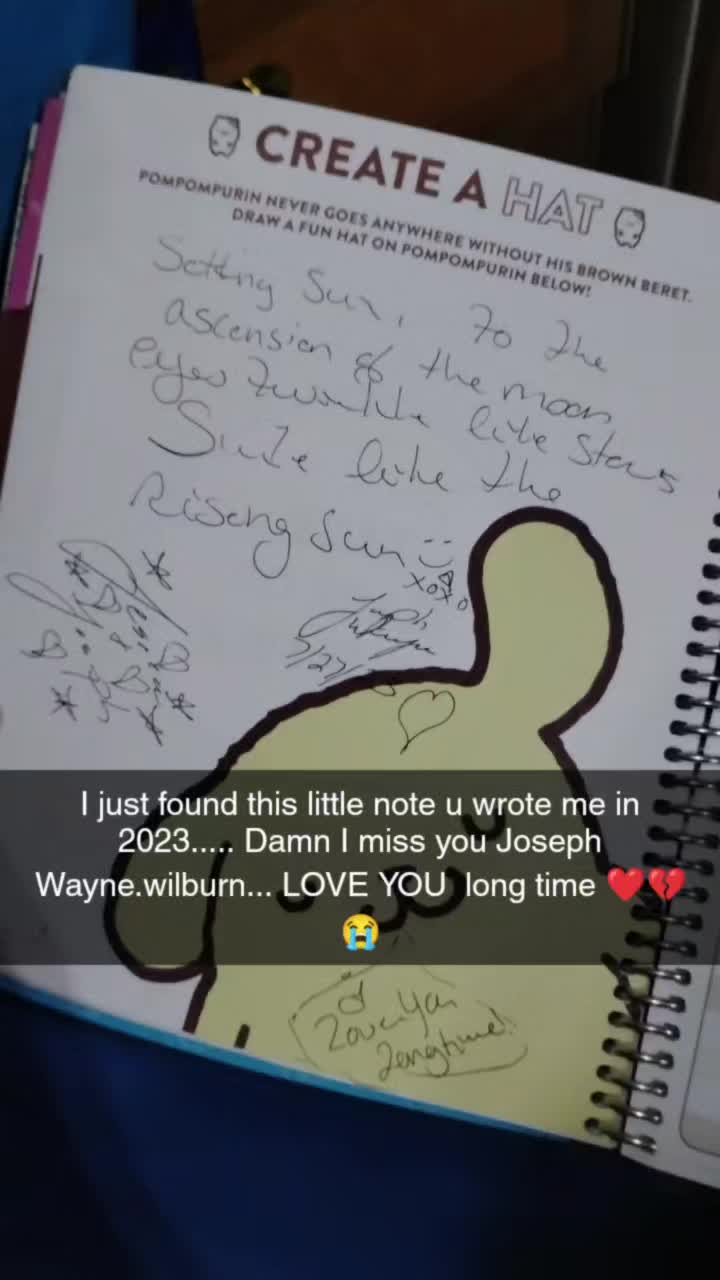 CREATE A HAT
POMPOMPURIN NEVER GOES ANYWHERE WITHOUT HIS BROWN BERET.
DRAW A FUN HAT ON POMPOMPURIN BELOW!
Setting Sun, To the
ascension of the moon
eyes twinkle like stars
Smile like the
Rising Sun
XOXO
Joseph
I just found this little note u wrote me in
2023..... Damn I miss you Joseph
Wayne.wilburn... LOVE YOU long time ❤️💔
😭
I
Love You
Longtime!